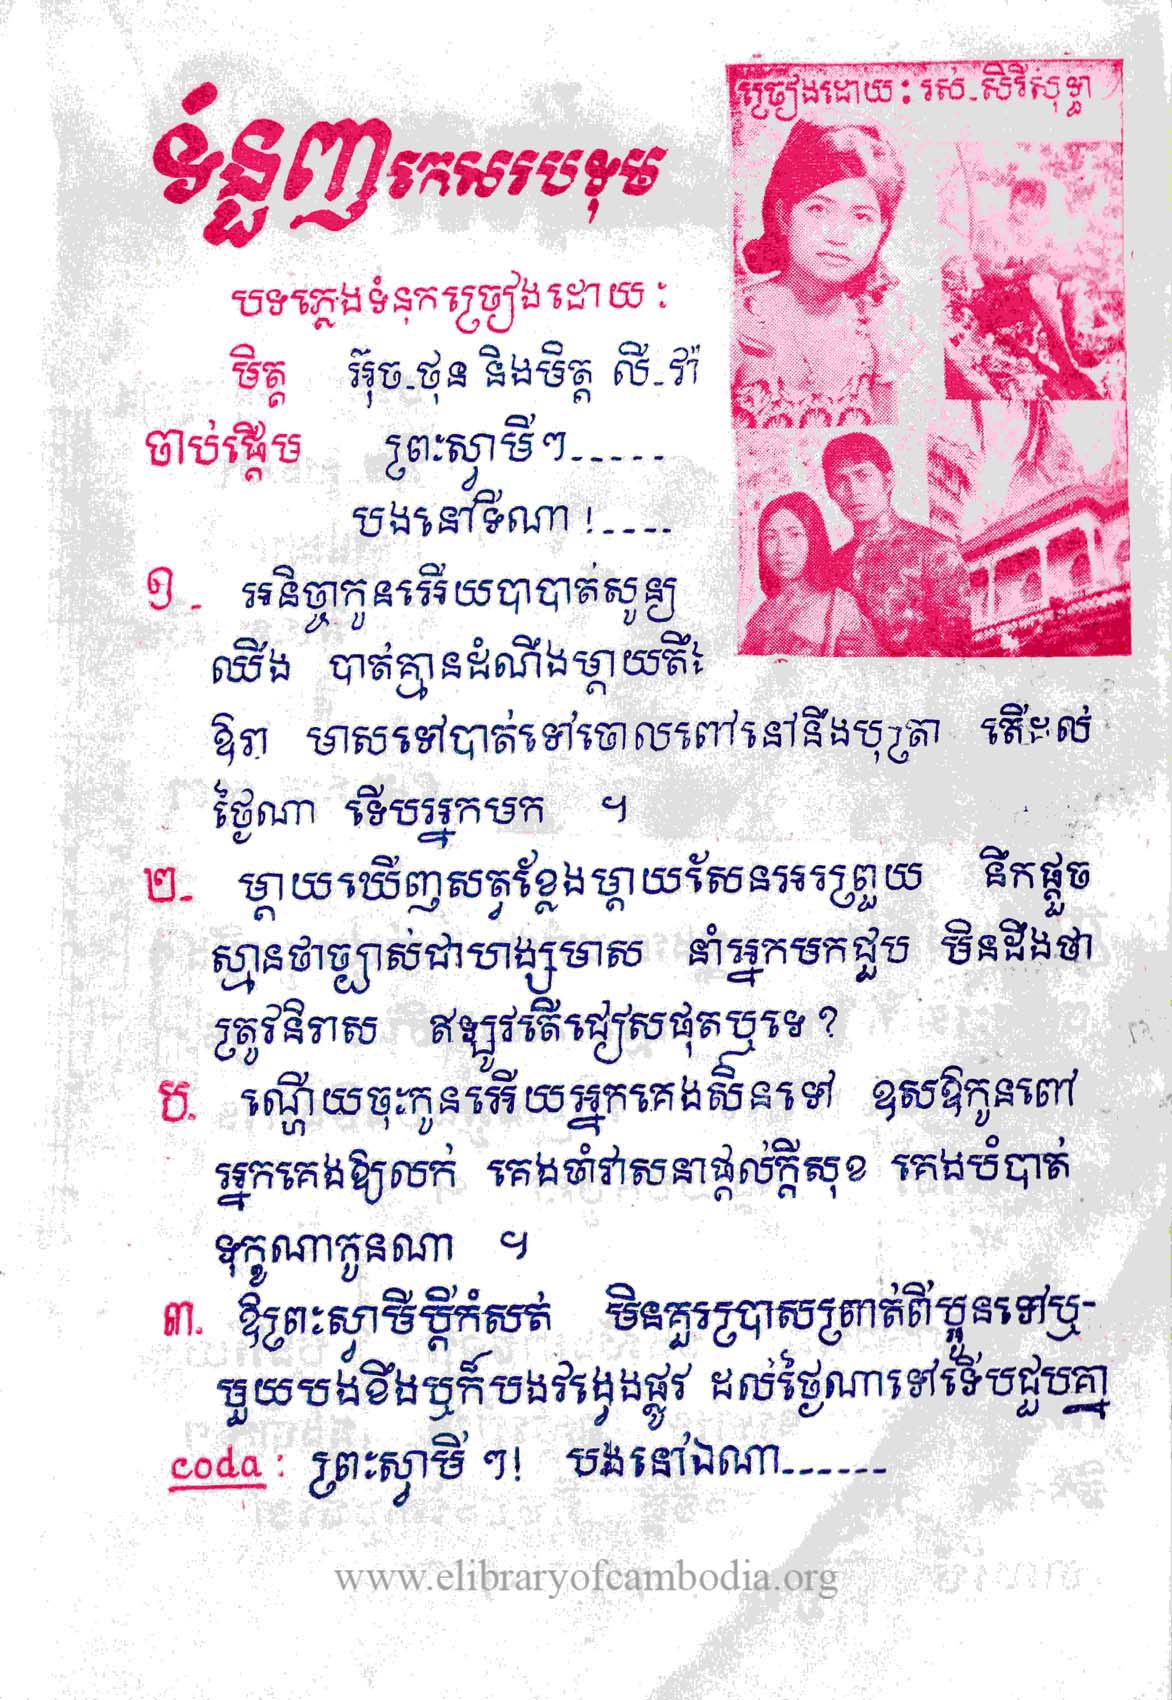 ច្រៀងដោយ: រស់-សិរីសុទ្ធា
ទំនួញកេសរបទុម
បទភ្លេងទំនុកច្រៀងដោយ:
មិត្ត អ៊ុច-ថុន និងមិត្ត លី-វ៉ា
ចាប់ផ្ដើម ព្រះស្វាមី ៗ-----
បងនៅទីណា !----
១- អនិច្ចាកូនអើយបាបាត់សូន្យ
ឈឹង បាត់គ្មានដំណឹងម្ដាយតឹង
ឱរា មាសទៅបាត់ទៅចោលពៅនៅនឹងបុត្រា តើដល់
ថ្ងៃណា ទើបអ្នកមក ។
២- ម្ដាយឃើញសត្វខ្លែងម្ដាយសែនអរព្រួយ នឹកផ្ដួច
ស្មានថាច្បាស់ជាហង្សមាស នាំអ្នកមកជួប មិនដឹងថា
ត្រូវនិរាស ឥឡូវតើជៀសផុតឬទេ ?
ប. ណ្ហើយចុះកូនអើយអ្នកគេងសិនទៅ ឧសឱកូនពៅ
អ្នកគេងឱ្យលក់ គេងចាំវាសនាផ្ដល់ក្ដីសុខ គេងបំបាត់
ទុក្ខណាកូនណា ។
៣. ឱ!ព្រះស្វាមីប្ដីកំសត់ មិនគួរប្រាសព្រាត់ពីប្អូនទៅឬ-
មួយបងខឹងឬក៏បងវង្វេងផ្លូវ ដល់ថ្ងៃណាទៅទើបជួបគ្នា
coda : ព្រះស្វាមី ៗ! បងនៅឯណា------
www.elibraryofcambodia.org